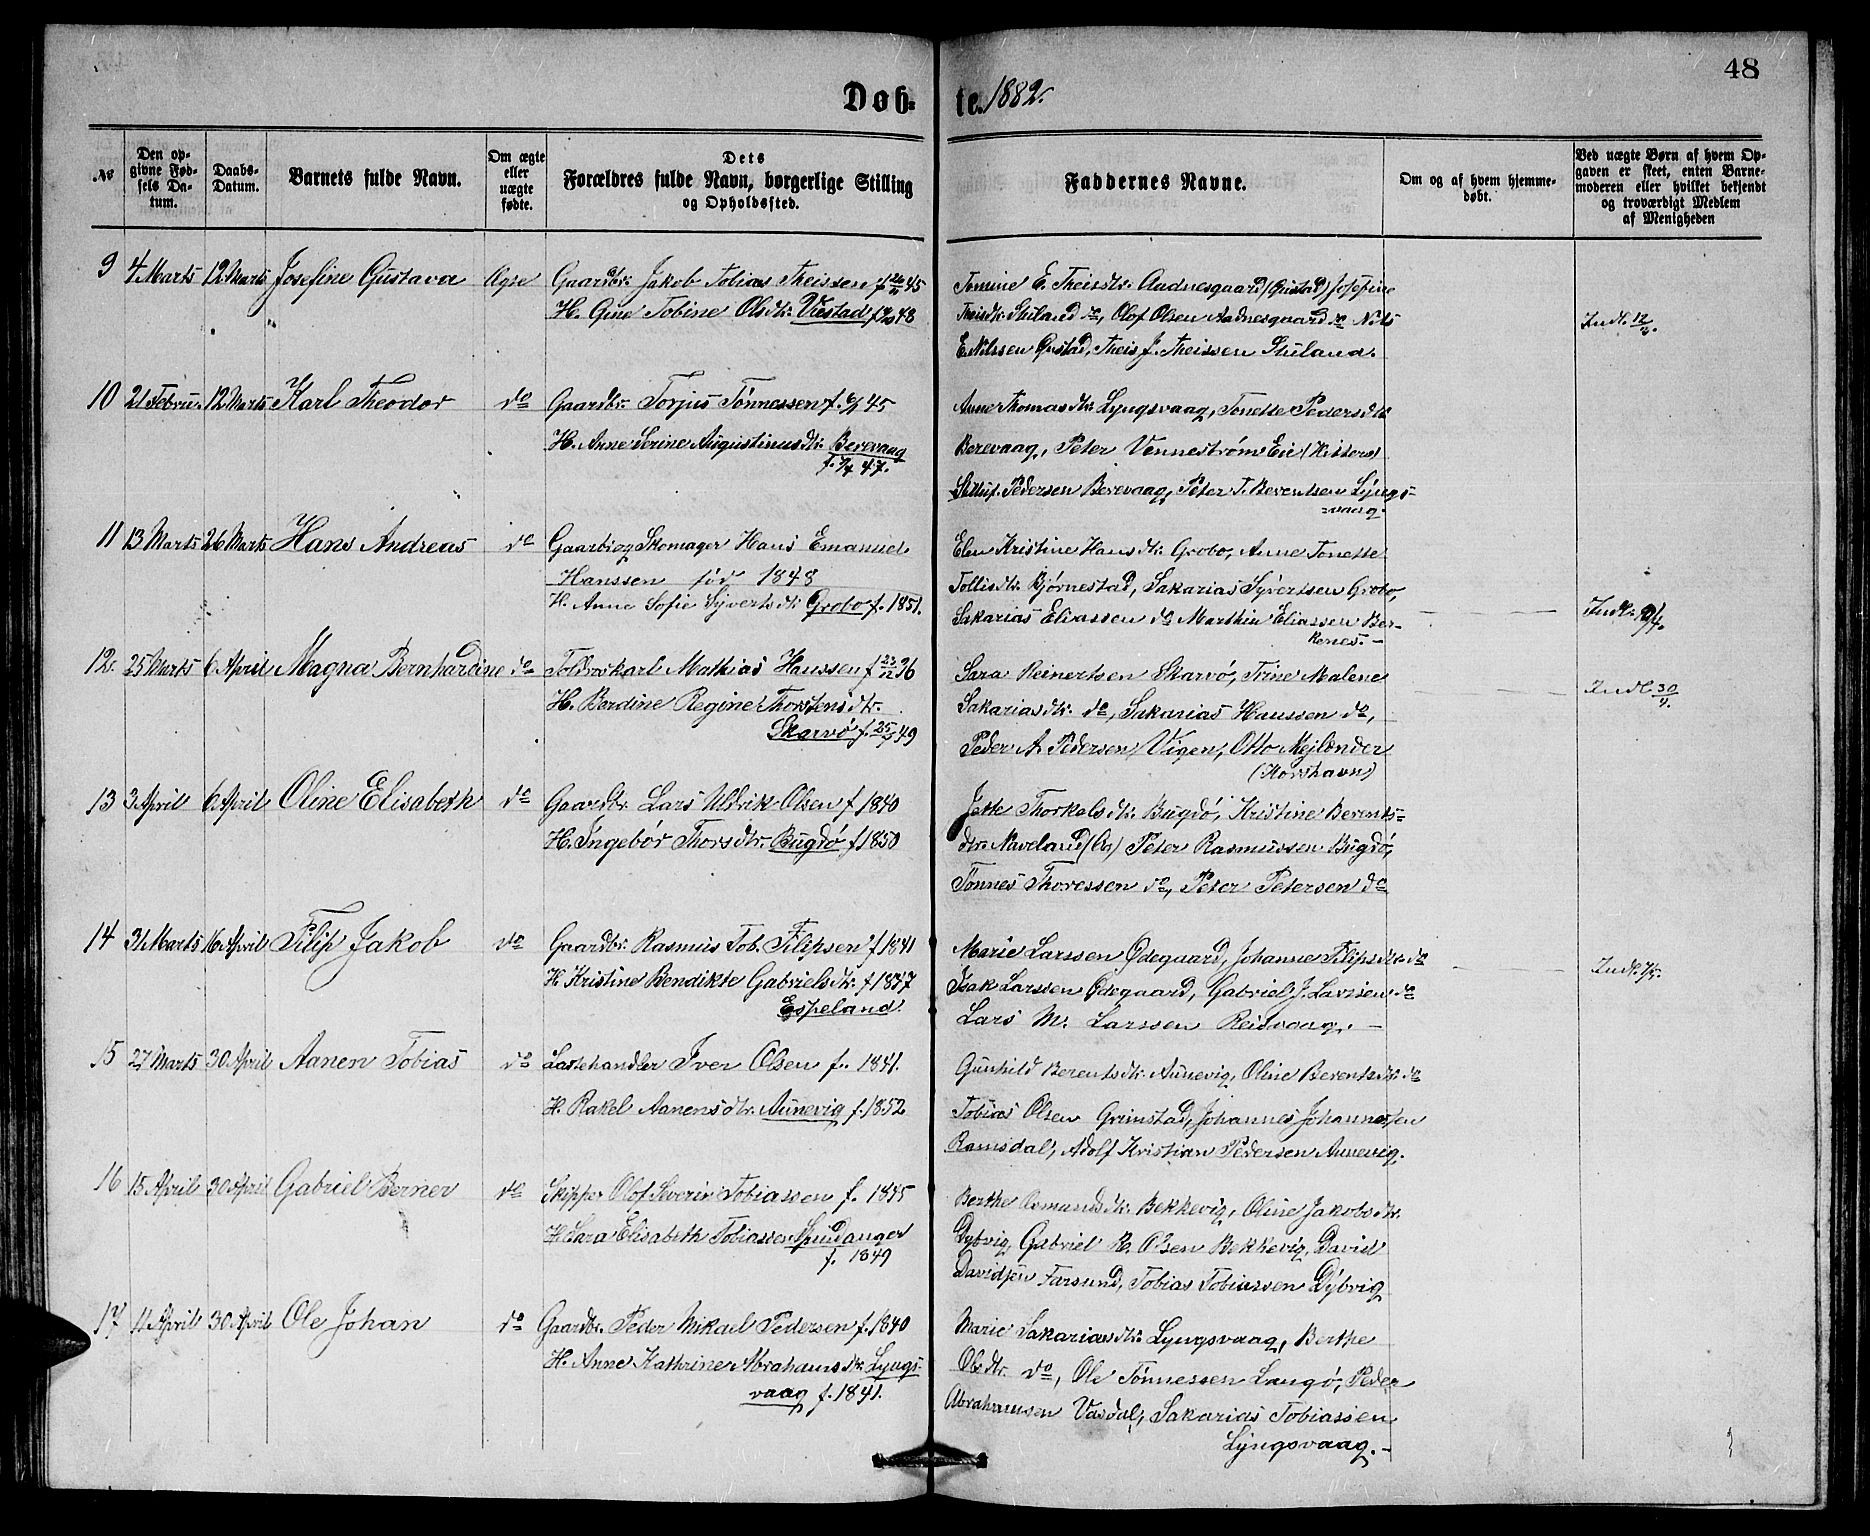 48
Døb-
te. 1882.
No
Den op-
givne Fød-
sels Da-
tum.
Daabs-
Datum.
Barnets fulde Navn.
Om ægte
eller
uægte
fødte.
Dets
Forældres fulde Navn, borgerlige Stilling
og Opholdssted.
Faddernes Navne.
Om og af hvem hjemme-
døbt.
Ved uægte Børn af hvem Op-
gaven er skeet, enten Barne-
moderen eller hvilket bekjendt
og troværdigt Medlem
af Menigheden
9 4 Marts 12 Marts Josefine Gustava Ægte Gaardbr. Jakob Tobias Theissen f. 45
H. Gine Tobine Olsdtr. Viestad f. 48
Tomine E. Theisdtr. Aadnesgaard (Gristad) Josefine
Theisdtr. Stuland do, Olof Olsen Aadnesgaard do Nils
E. Nilssen Gustad, Theis J. Theissen Stuland.
Indl. 12/3.
10 21 Febru. 12 Marts Karl Theodor do Gaardbr. Torjus Tønnessen f. 45
H. Anne Serine Augustinusdtr. Berevaag
f. 47.
Anne Thomasdtr. Lyngsvaag, Tonette Pedersdtr
Berevaag, Peter Vennestrøm Eie (Hitterø)
Pedersen Berevaag, Peter T. Berentsen Lyngs-
vaag.
11 13 Marts 26 Marts Hans Andreas do Gaardb. og Skomager Hans Emanuel
Hanssen fød 1848
H. Anne Sofie Syvertsdtr. Grobo f. 1851.
Elen Kristine Hansdtr. Grobo, Anne Tonette
Tollisdtr. Bjørnestad, Sakarias Syvertsen Grobo,
Sakarias Eliassen do Marthin Eliassen Ber-
kenes.-
Indl.
12. 25 Marts 6 April Magna Bernhardine do Toldroskarl Mathias Hanssen f 23/12 36
H. Berdine Regine Thorstensdtr.
Skarvø f. 49
Sara Reinertsen Skarvø, Trine Malene
Sakariasdtr. do, Sakarias Hanssen do,
Peder A. Pedersen Vigen, Otto Mejlænder
(Korshavn)
Indl. 30/
13 3 April 6 April Oline Elisabeth do Gaardbr. Lars Uldrik Olsen f 1840
H. Ingebør Thorsdtr. Bugdø f 1850
Jette Thorkelsdtr. Bugdø, Kristine Berents-
dtr. Naveland (Aa) Peter Rasmussen Bugdø,
Tønnes Thoressen do, Peter Petersen do
14 31 Marts 16 April Filip Jakob do Gaardbr. Rasmus Tob. Filipsen f 1841
H. Kristine Bendikte Gabrielsdtr. f 1847
Espeland.
Marie Larssen Ødegaard, Johanne Filipsdtr. do
Isak Larssen Ødegaard, Gabriel J. Larssen do
Lars M. Larssen Reisvaag.
Indl.
15 27 Marts 30 April Aanen Tobias do Lastehandler Iver Olsen f. 1841.
H. Rakel Aanensdtr. Aunevig f. 1852
Gunhild Berentsdtr. Aunevig, Oline Berentsdtr. do
Tobias Olsen Grimstad, Johannes Johannessen
Ramsdal, Adolf Kristian Pedersen Aunevig.
16 15 April 30 April Gabriel Berner do Skipper Olof Severin Tobiassen f. 1845
H. Sara Elisabeth Tobiassen Spindanger
f. 1849
Berthe Osmundsdtr. Bekkevig, Oline Jakobsdtr.
Dybvig, Gabriel R. Olsen Bekkevig, David
Davidsen Farsund, Tobias Tobiassen Dybvig
17 4 April 30 April Ole Johan do Gaardbr. Peder Mikael Pedersen f. 1840
H. Anne Kathrine Abrahamsdtr. Lyngs-
vaag f. 1841.
Marie Sakariasdtr. Lyngsvaag, Berthe
Olsdtr. do, Ole Tønnessen Langø, Peder
Abrahamsen Vasdal, Sakarias Tobiassen
Lyngsvaag.-